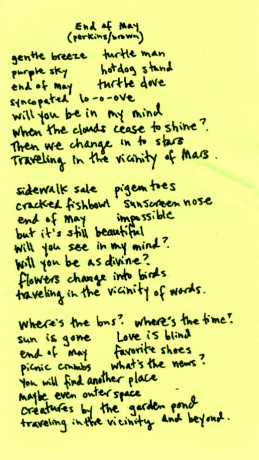 End of May
(perkins/brown)
gentle breeze turtle man
purple sky hotdog stand
end of may turtle dove
syncopated lo-o-ove
will you be in my mind
when the clouds cease to shine?
Then we change in to stars
Traveling in the vicinity of Mars.
sidewalk sale pigeon toes
cracked fishbowl sunscreen nose
end of May impossible
but it's still beautiful
will you see in my mind?
will you be as divine?
flowers change into birds
traveling in the vicinity of words.
where's the bus? where's the time?
sun is gone Love is blind
end of may favorite shoes
picnic crumbs what's the news?
You will find another place
maybe even outer space
creatures by the garden pond
traveling in the vicinity and beyond.